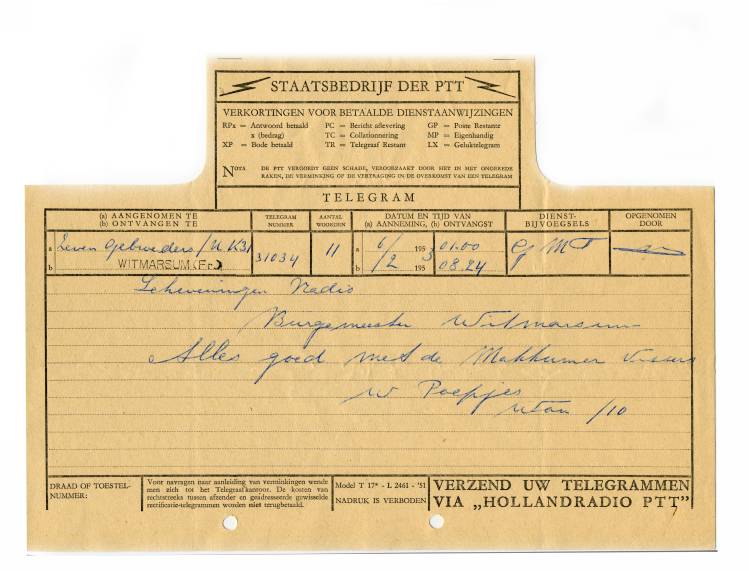 STAATSBEDRIJF DER PTT
VERKORTINGEN VOOR BETAALDE DIENSTAANWIJZINGEN
RPx = Antwoord betaald PC = Bericht aflevering GP = Poste Restante
x (bedrag) TC = Collationnering MP = Eigenhandig
XP = Bode betaald TR = Telegraaf Restant LX = Geluktelegram
NOTA DE PTT VERGOEDT GEEN SCHADE, VEROORZAAKT DOOR HET IN HET ONGEREDE
RAKEN, DE VERMINKING OF DE VERTRAGING IN DE OVERKOMST VAN EEN TELEGRAM
TELEGRAM
(a) AANGENOMEN TE
(b) ONTVANGEN TE
TELEGRAM
NUMMER
AANTAL
WOORDEN
DATUM EN TIJD VAN
(a) AANNEMING, (b) ONTVANGST
DIENST-
BIJVOEGSELS
OPGENOMEN
DOOR
a Zeven Gebroeders/U.K31 31034 11 a 6/ 195 01.00
b WITMARSUM (Fr.) b /2 1953 08.24
Scheveningen Radio
Burgemeester Witmarsum
Alles goed met de Makkumer Vissers
W Poepjes
/10
DRAAD OF TOESTEL-
NUMMER:
Voor navragen naar aanleiding van verminkingen wende
men zich tot het Telegraafkantoor. De kosten van
rechtstreeks tussen afzender en geadresseerde gewisselde
rectificatie-telegrammen worden niet terugbetaald.
Model T 17* - L 2461 - '51
NADRUK IS VERBODEN
VERZEND UW TELEGRAMMEN
VIA „HOLLANDRADIO PTT”